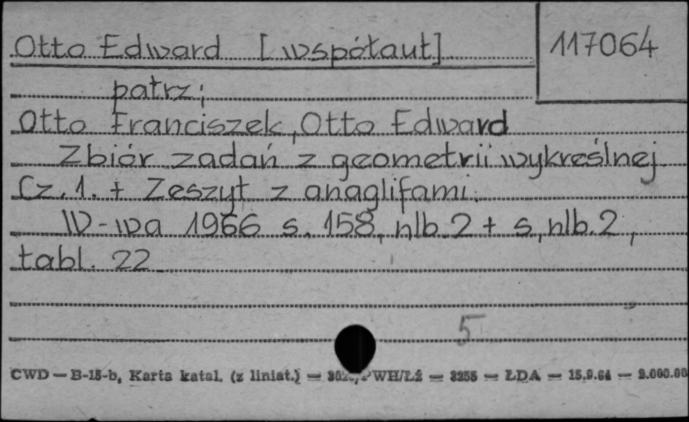 Otto Edward [współaut]
117064
patrz:
Otto Franciszek, Otto Edward
Zbiór zadań z geometrii wykreślnej
Cz. 1. + Zeszyt z anaglifami.
W-wa 1966 s. 158, nlb. 2 + s, nlb. 2,
tabl. 22
5
CWD — B-15-b, Karta katal. (z liniat.) — PWH/Łź — 3255 — ŁDA — 15.9.64 — 2.000.00